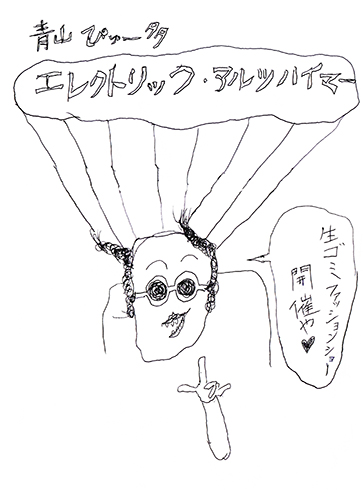 青山 ぴゅー夕
エレクトリック・アルツハイマー
生ゴミファッションショー
開催や♥